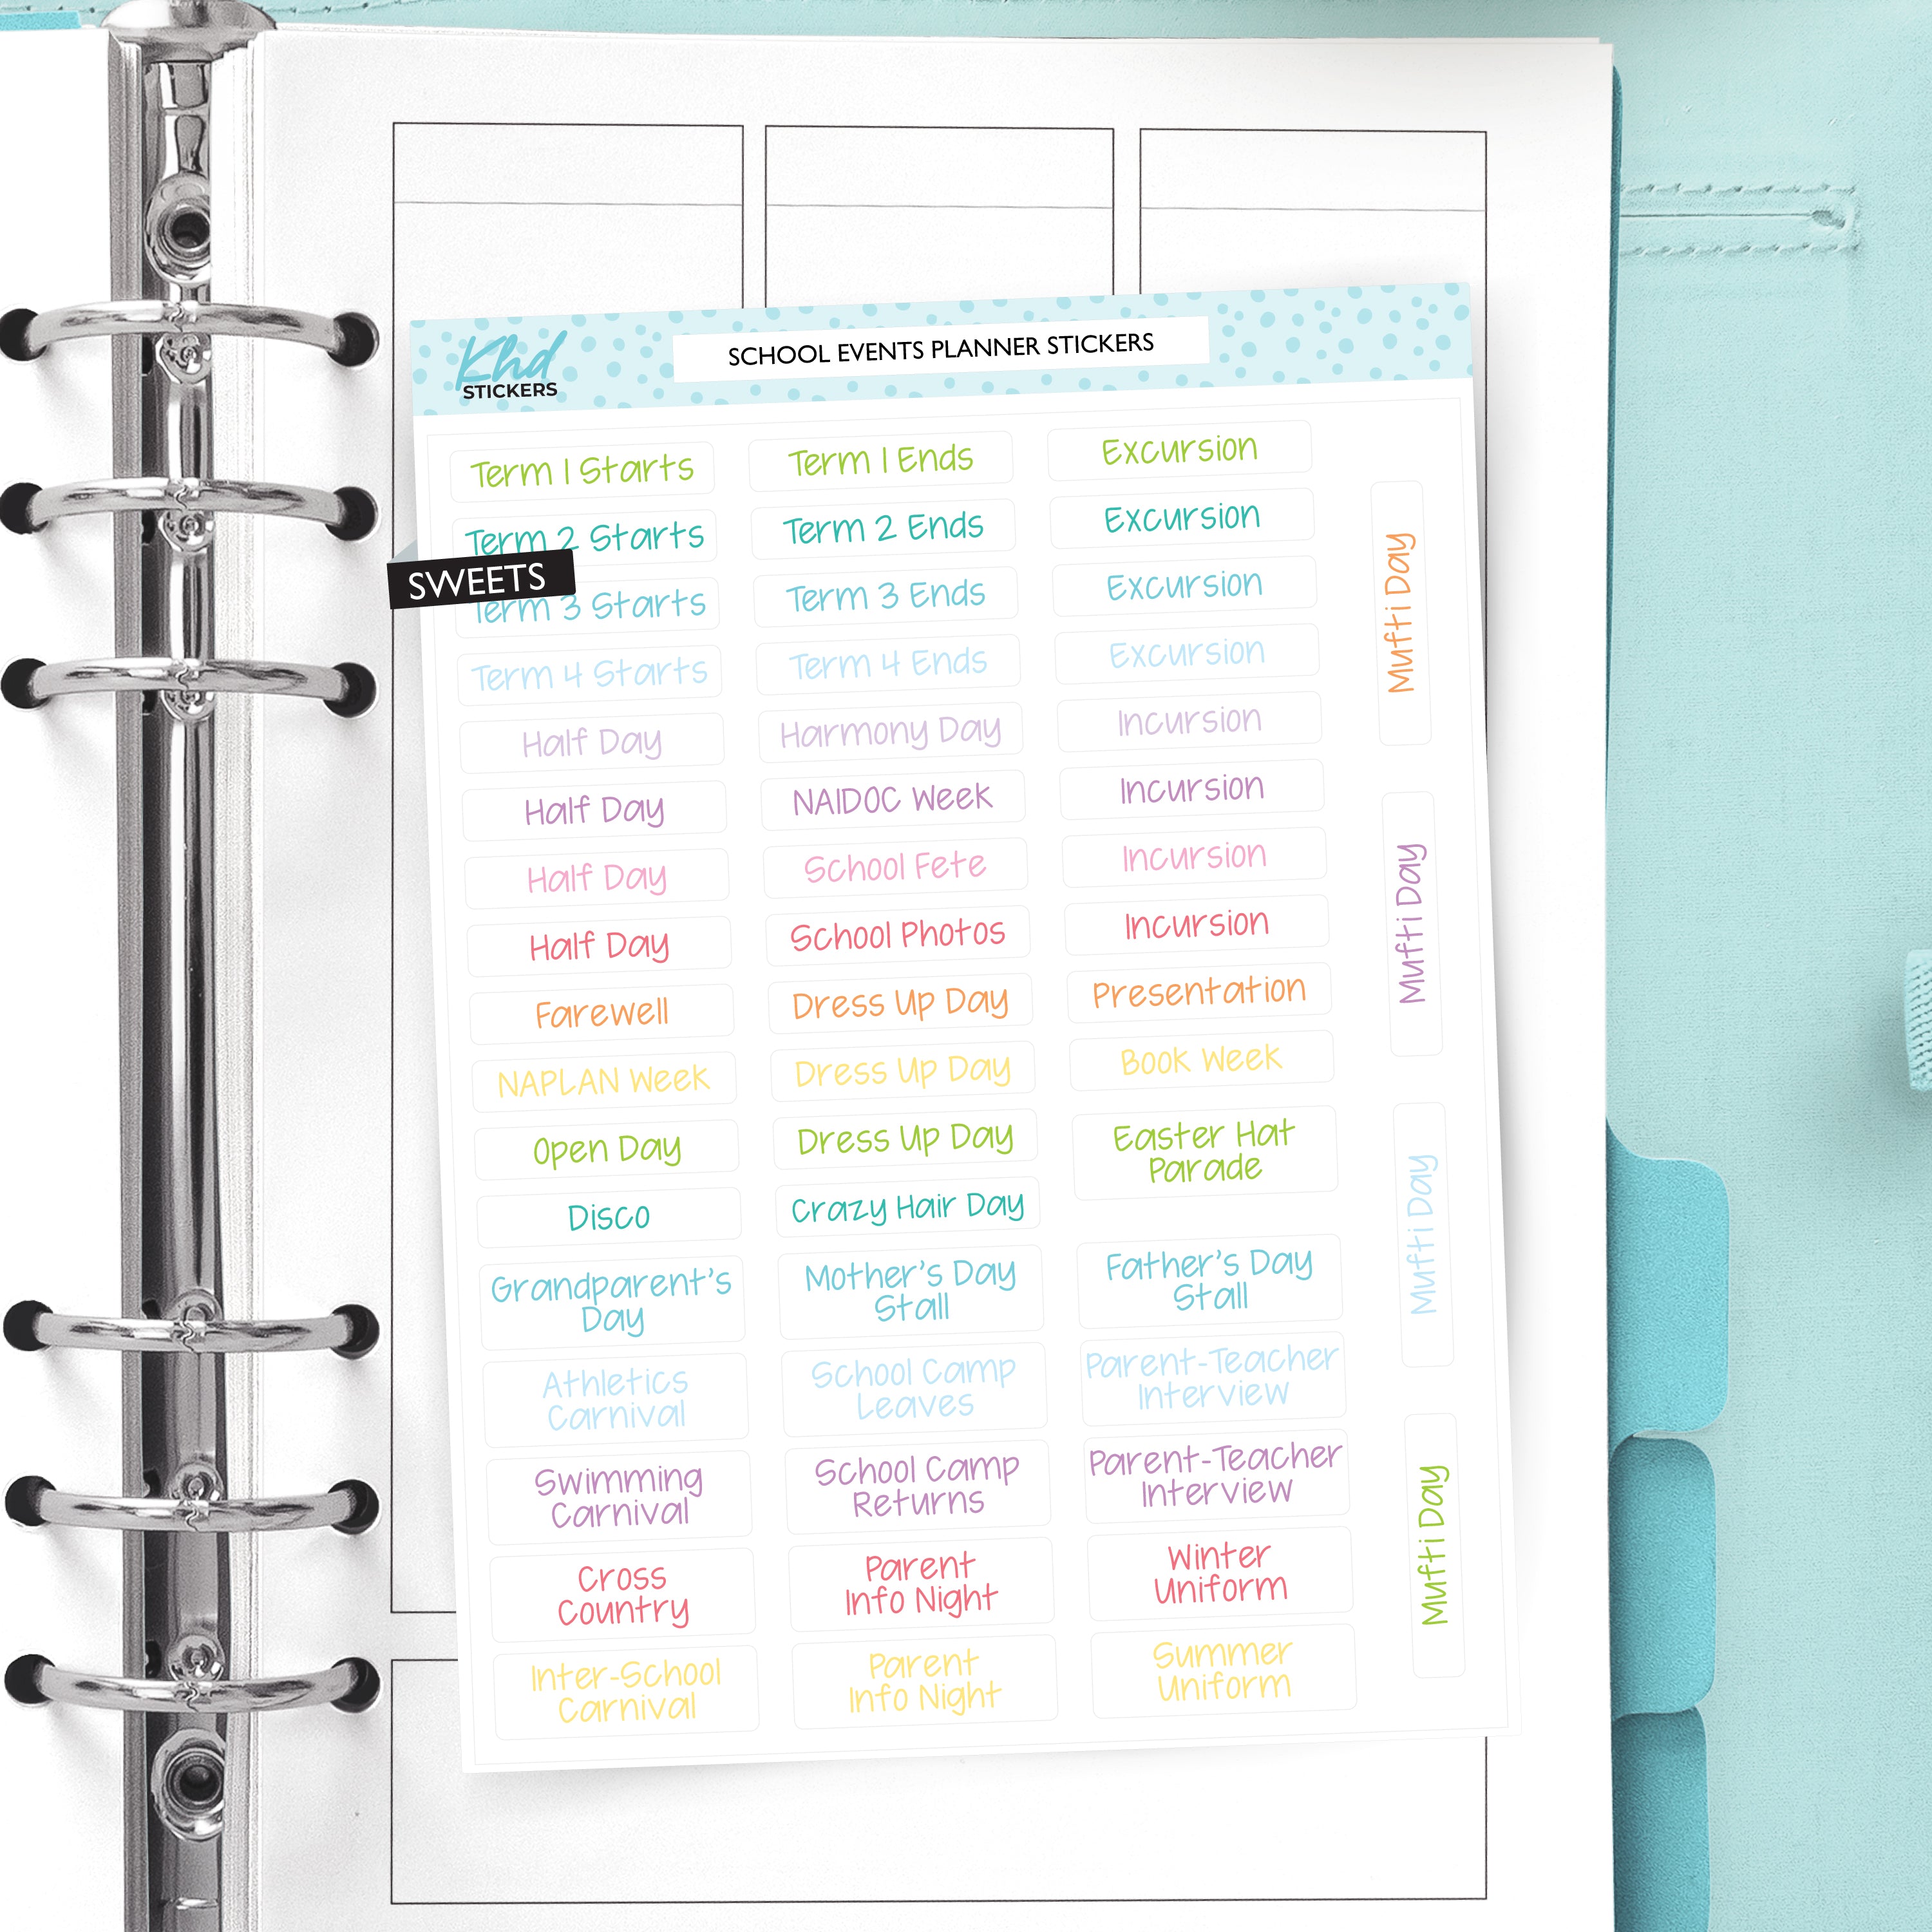 Khd
STICKERS
SCHOOL EVENTS PLANNER STICKERS
SWEETS
Term 1 Starts
Term 1 Ends
Excursion
Term 2 Starts
Term 2 Ends
Excursion
Term 3 Starts
Term 3 Ends
Excursion
Term 4 Starts
Term 4 Ends
Excursion
Half Day
Harmony Day
Incursion
Half Day
NAIDOC Week
Incursion
Half Day
School Fete
Incursion
Half Day
School Photos
Incursion
Farewell
Dress Up Day
Presentation
NAPLAN Week
Dress Up Day
Book Week
Open Day
Dress Up Day
Easter Hat
Parade
Disco
Crazy Hair Day
Grandparent's
Day
Mother's Day
Stall
Father's Day
Stall
Athletics
Carnival
School Camp
Leaves
Parent-Teacher
Interview
Swimming
Carnival
School Camp
Returns
Parent-Teacher
Interview
Cross
Country
Parent
Info Night
Winter
Uniform
Inter-School
Carnival
Parent
Info Night
Summer
Uniform
Mufti Day
Mufti Day
Mufti Day
Mufti Day